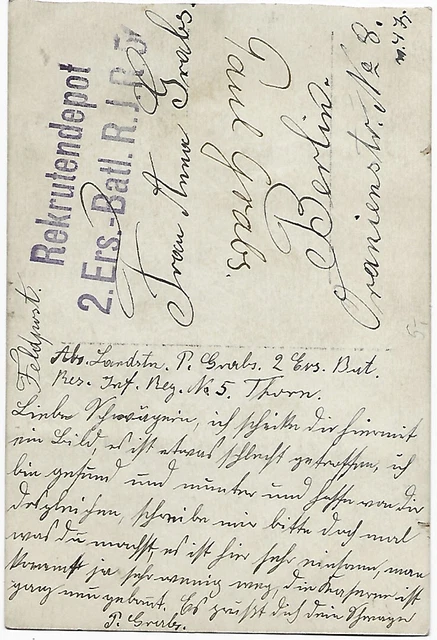 Feldpost.
Rekrutendepot
2. Ers.-Batl. R. J. R. 5
Frau Anna Grabs.
Paul Grabs.
Berlin.
Oranienstr. No 8.
Abs. Landstm. P. Grabs. 2 Ers. Bat.
Res. Inf. Reg. No 5. Thorn.
Liebe Schwägerin, ich schicke dir hiermit
ein Bild, es ist etwas schlecht getroffen, ich
bin gesund und munter und hoffe von dir
desgleichen, schreibe mir bitte doch mal
was du machst, es ist hier sehr einsam, man
kommt ja sehr wenig weg, die Kaserne ist
ganz neu gebaut. Es grüßt dich dein Schwager
P. Grabs.
5,-